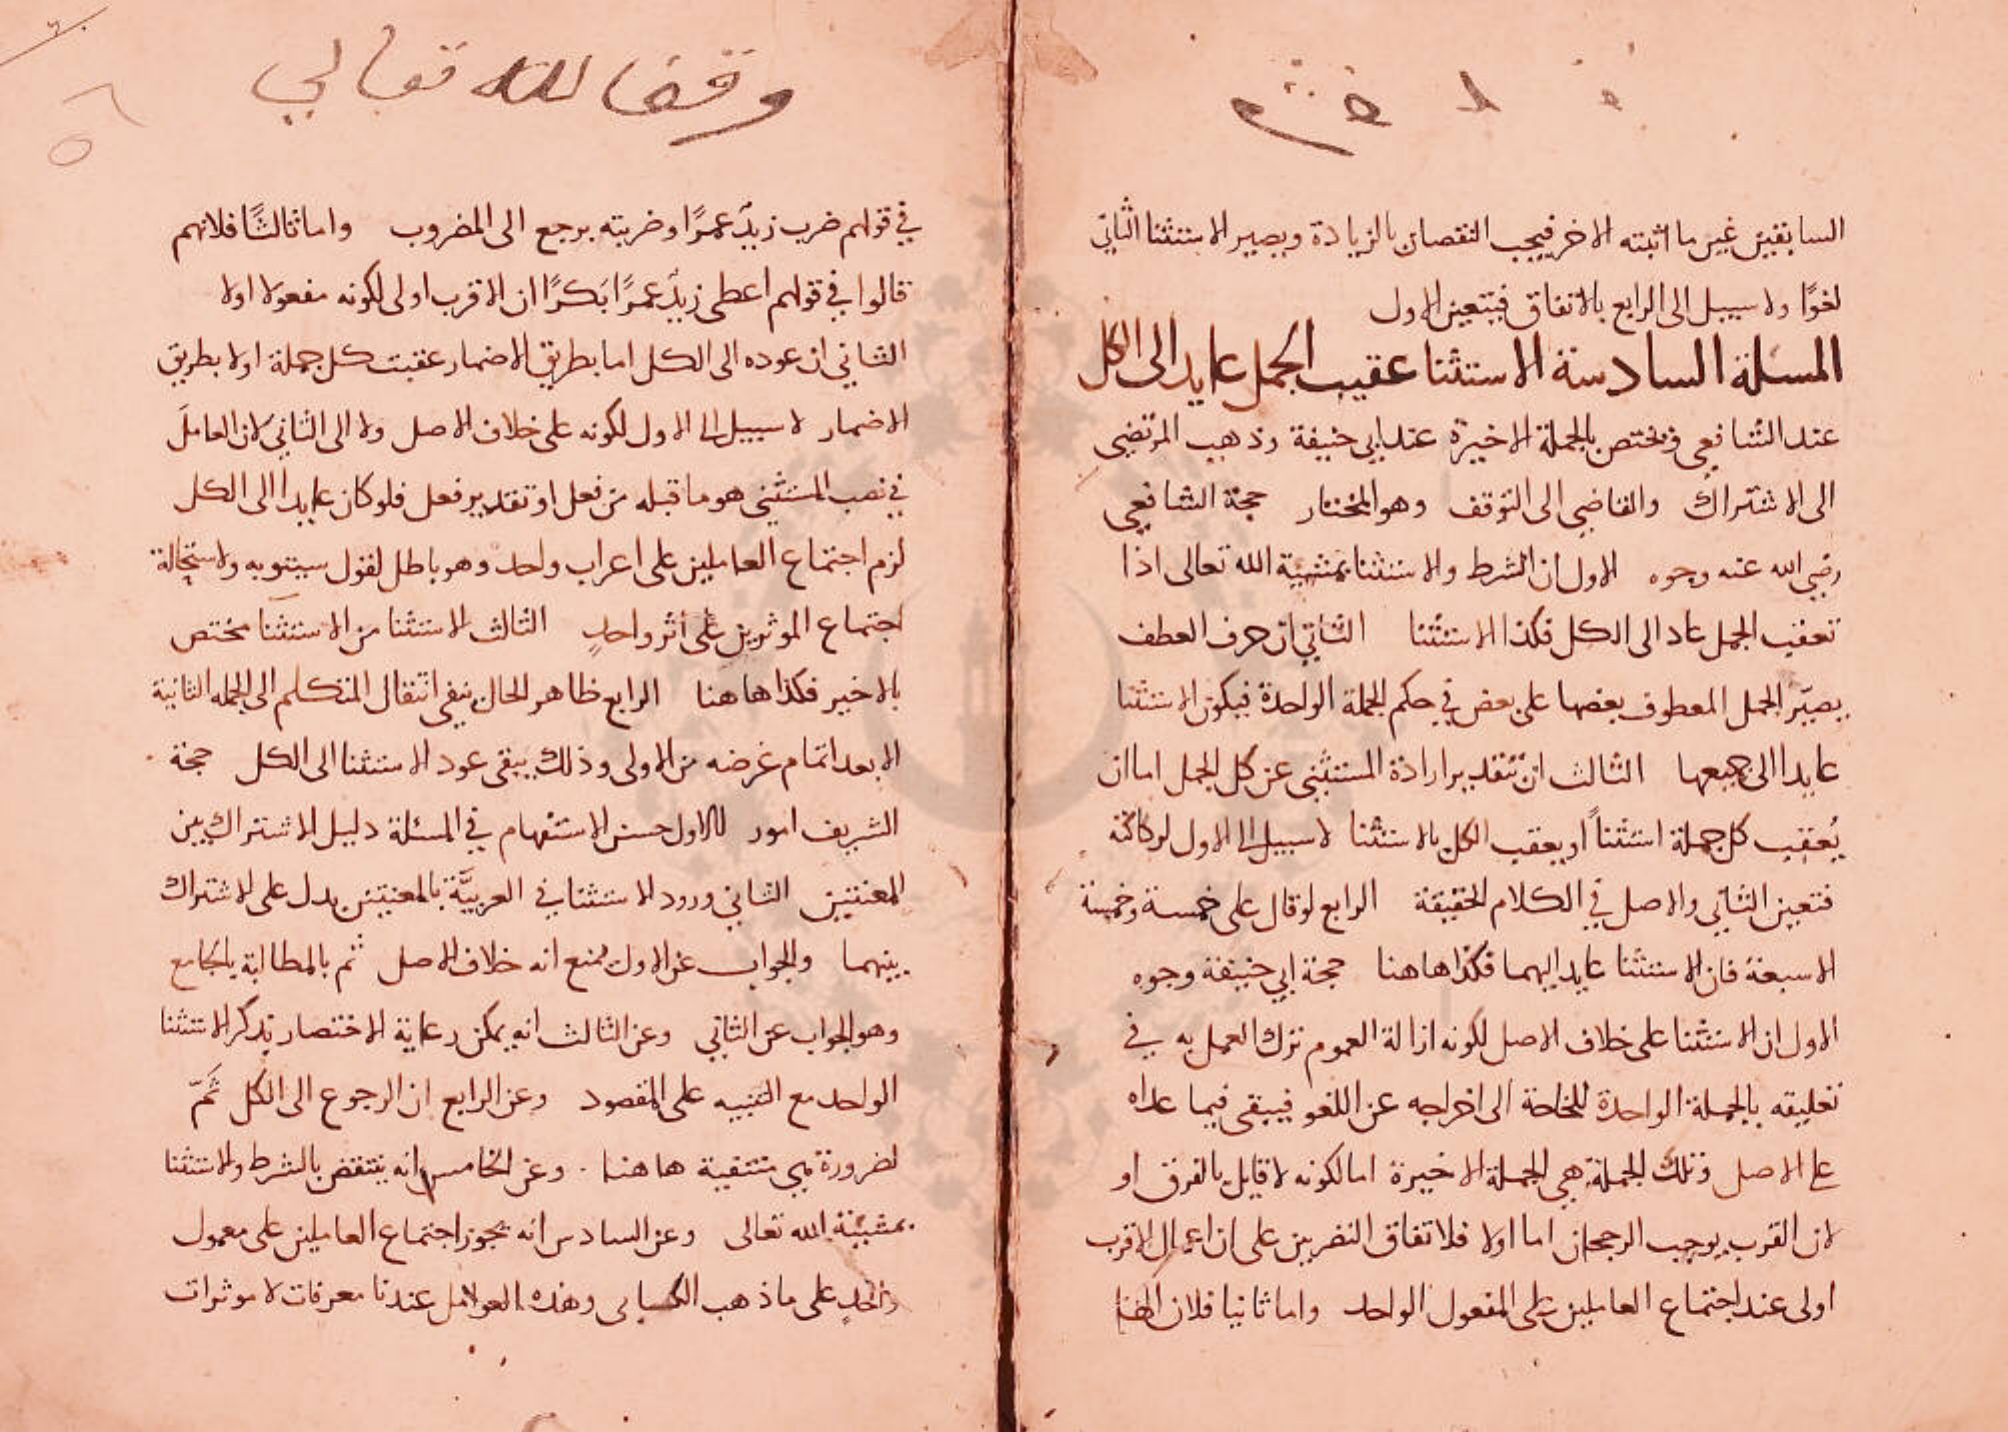 السابقين غير ما اثبته الاخر فيجب النقصان بالزيادة ويصير الاستثنا الثاني
لغوًا ولا سبيل الى الرابع بالاتفاق فيتعين الاول
المسئلة السادسة الاستثنا عقيب الجمل عايد الى الكل
عند الشافعي ومختص بالجملة الاخيرة عند ابي حنيفة وذهب المرتضى
الى الاشتراك والقاضي الى التوقف وهو المختار حجة الشافعي
رضي الله عنه وجوه الاول ان الشرط والاستثنا بمشية الله تعالى اذا
تعقب الجمل عاد الى الكل فكذا الاستثنا الثاني ان حرف العطف
يصيّر الجمل المعطوف بعضها على بعض في حكم الجملة الواحدة فيكون الاستثنا
عايدا الى جميعها الثالث ان بتقدير ارادة المستثنى عن كل الجمل اما ان
يُعقب كل جملة استثناً او يعقب الكل بالاستثنا لا سبيل الى الاول لركاكته
فتعين الثاني والاصل في الكلام الحقيقة الرابع لو قال على خمسة وخمسة
الا سبعة فان الاستثنا عايد اليهما فكذا هاهنا حجة ابي حنيفة وجوه
الاول ان الاستثنا على خلاف الاصل لكونه ازالة العموم ترك العمل به في
تعليقه بالجملة الواحدة للحاجة الى اخراجه عن اللغو فيبقى فيما عداه
على الاصل وتلك الجملة هي الجملة الاخيرة اما لكونه لا قايل بالفرق او
لان القرب يوجب الرجحان اما اولا فلاتفاق النفرين على ان اعمال الاقرب
اولى عند اجتماع العاملين على المفعول الواحد واما ثانيا فلان
وقفا لله تعالى
في قولهم ضرب زيدٌ عمرًا وضربته يرجع الى المضروب واما ثالثًا فلانهم
قالوا في قولهم اعطى زيدٌ عمرًا بكرًا ان الاقرب اولى لكونه مفعولا اولا
الثاني ان عوده الى الكل اما بطريق الاضمار عقبت كل جملة او لا بطريق
الاضمار لا سبيل الى الاول لكونه على خلاف الاصل ولا الى الثاني لان العاملَ
في نصب المستثنى هو ما قبله من فعل او تقدير فعل فلو كان عايدا الى الكل
لزم اجتماع العاملين على اعراب واحد وهو باطل لقول سيبويه ولاستحالة
اجتماع الموثرين على أثر واحدٍ الثالث الاستثنا من الاستثنا مختص
بالاخير فكذا هاهنا الرابع ظاهر الحال ينفي انتقال المتكلم الى الجمله الثانية
الا بعد اتمام غرضه من الاولى وذلك يبقى عود الاستثنا الى الكل حجة
الشريف امور الاول حسن الاستفهام في المسئلة دليل الاشتراك بين
المعنيين الثاني ورود الاستثنا في العربيَّة بالمعنيين يدل على الاشتراك
بينهما والجواب عن الاول بمنع انه خلاف الاصل ثم بالمطالبة بالجامع
وهو الجواب عن الثاني وعن الثالث انه يمكن رعاية الاختصار بذكر الاستثنا
الواحد مع التنبيه على المقصود وعن الرابع ان الرجوع الى الكل ثَمَّ
لضرورة هي منتفية هاهنا وعن الخامس انه ينتقض بالشرط والاستثنا
بمشيئة الله تعالى وعن السادس انه يجوز اجتماع العاملين على معمول
واحدٍ على ما ذهب الكسائي وهذه العوامل عندنا معرفات لا موثرات